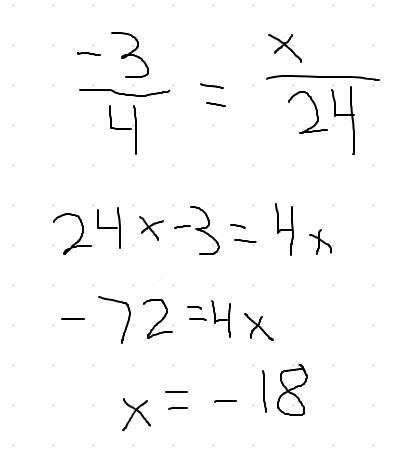 -3/4 = x/24
24x-3=4x
-72=4x
x=-18